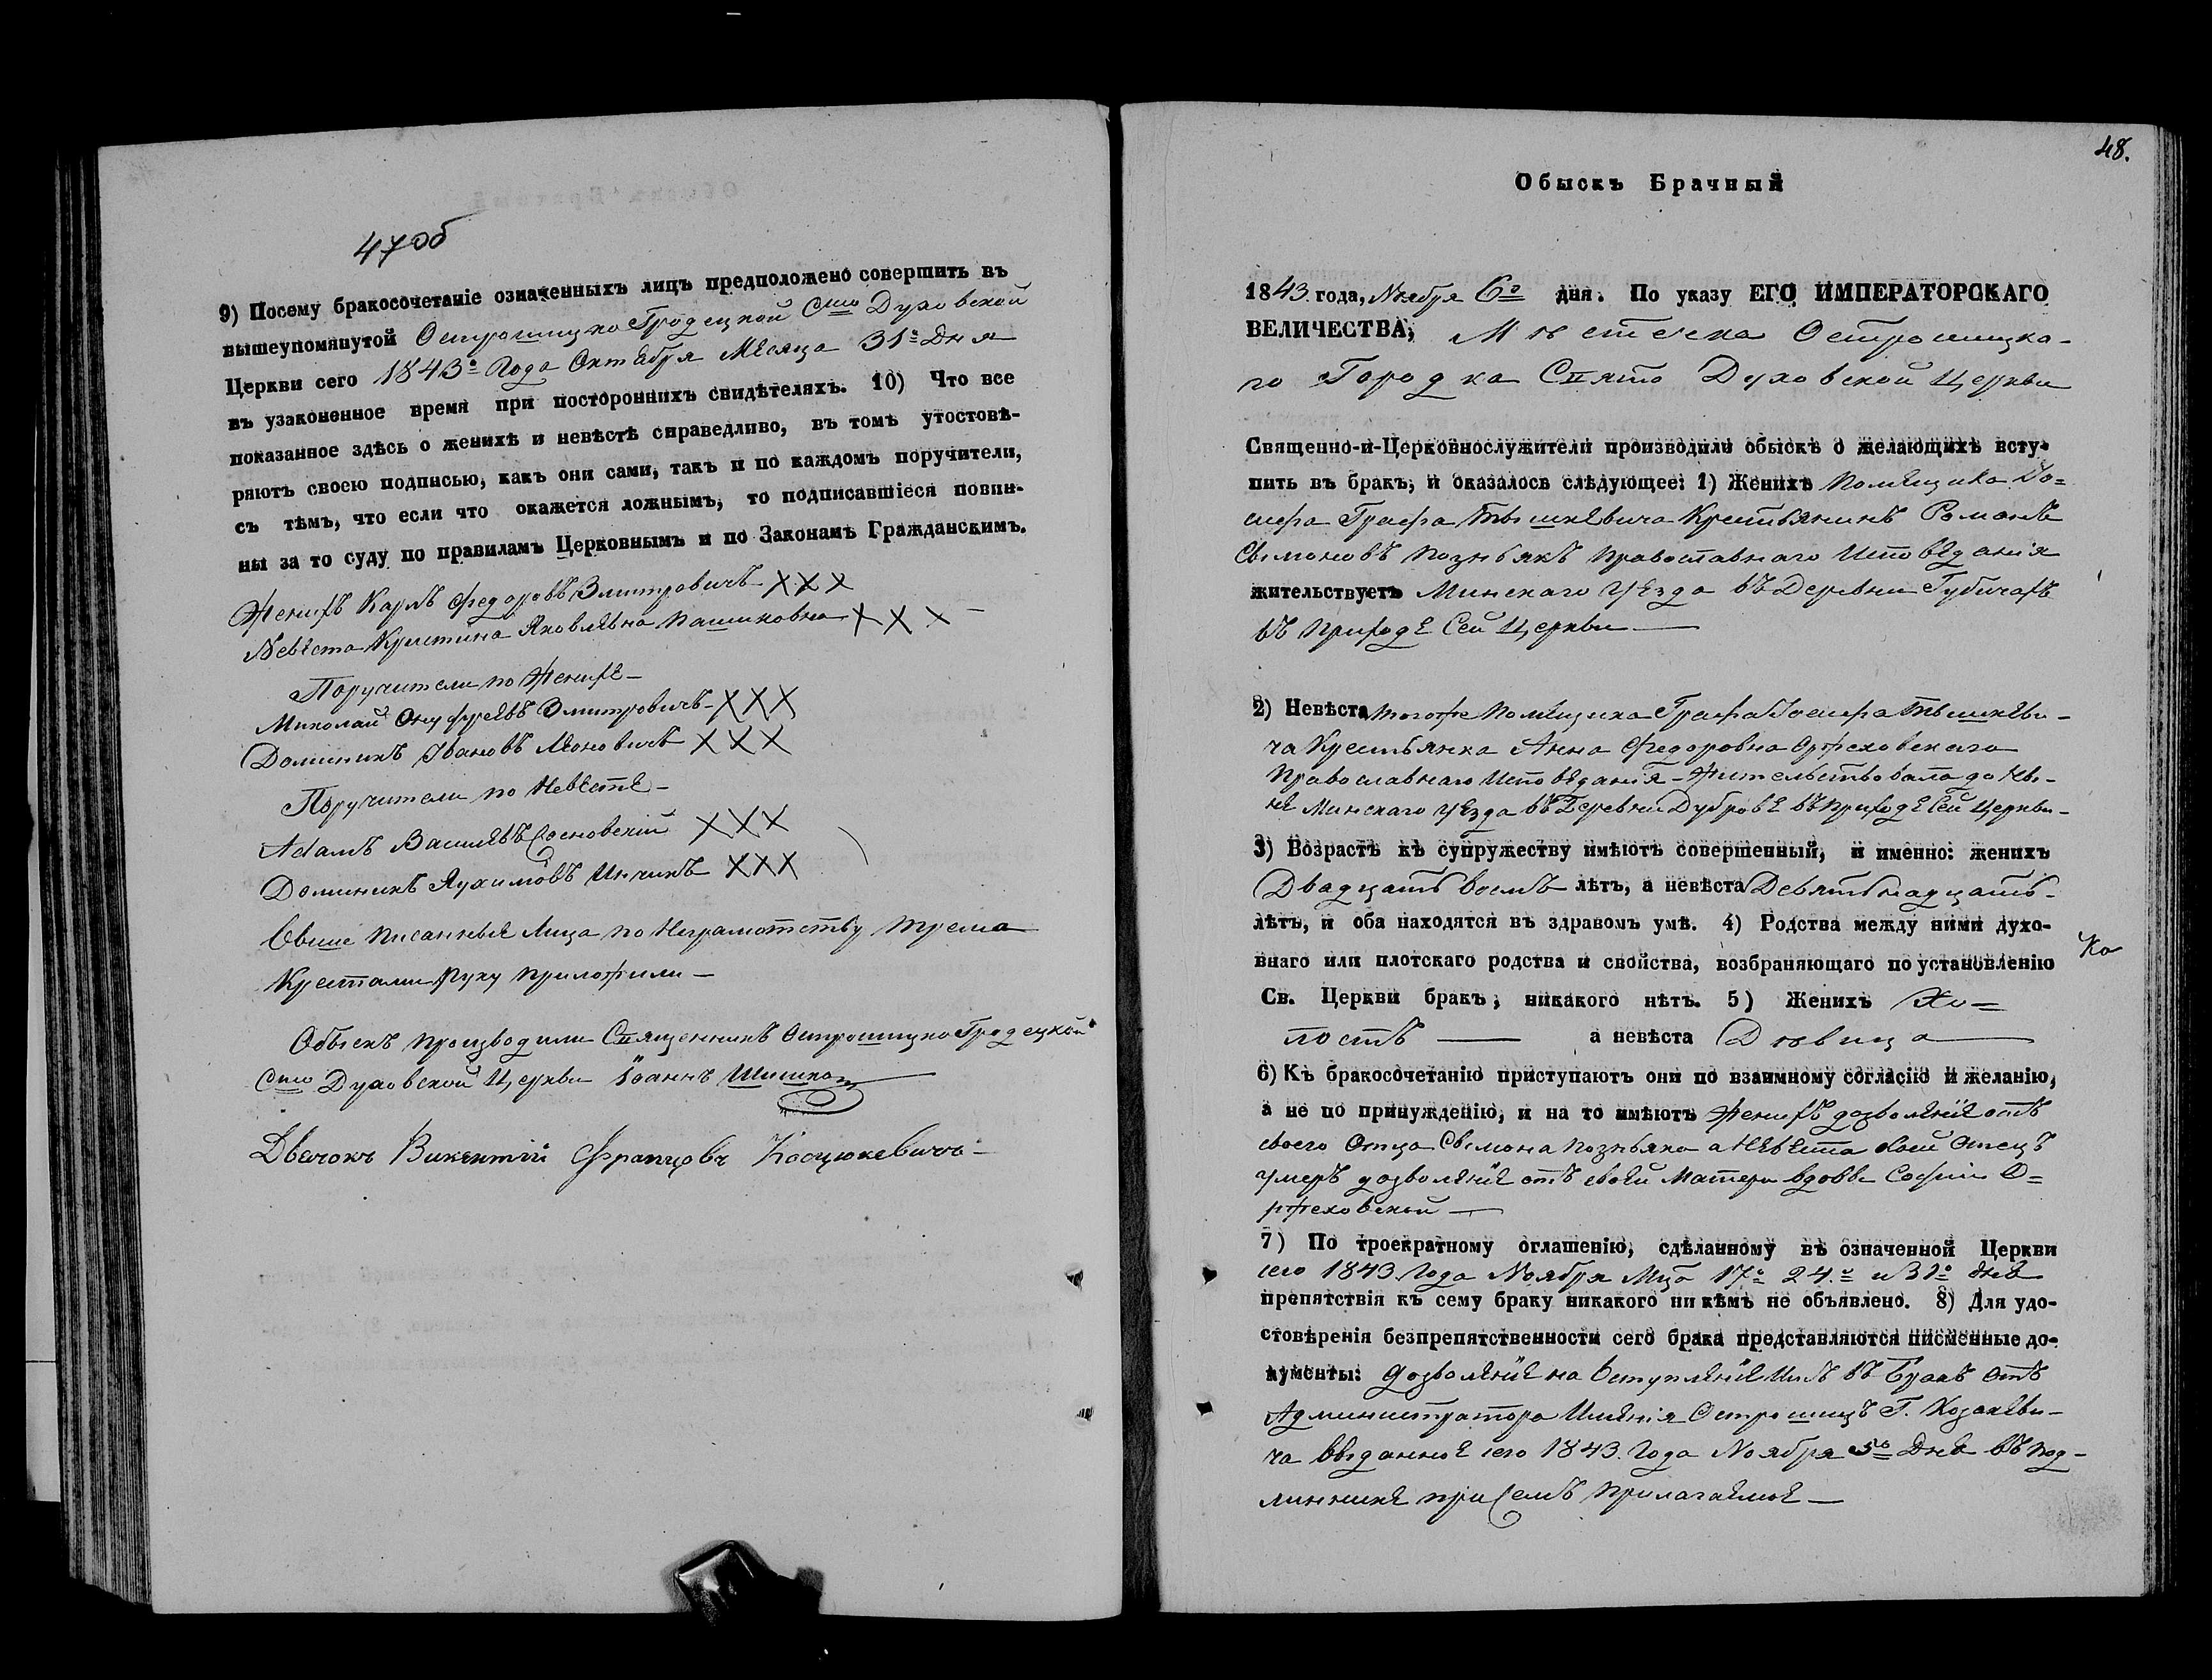 47 об
9) Посему бракосочетаніе означенныхъ лицъ предположено совершить въ
вышеупомянутой Острошицко Гродецкой Сто Духовской
Церкви сего 1843º Года Октября Месяца 31º Дня
въ узаконенное время при постороннихъ свидѣтеляхъ. 10) Что все
показанное здѣсь о женихѣ и невѣстѣ справедливо, въ томъ утостовѣ-
ряютъ своею подписью, какъ они сами, такъ и по каждомъ поручители,
съ тѣмъ, что если что окажется ложнымъ, то подписавшіеся повин-
ны за то суду по правиламъ Церковнымъ и по Законамъ Гражданскимъ.
Женихъ Карлъ Федоровъ Змитровичъ ХХХ
Невѣста Кристина Яковлѣвна Пашковна ХХХ
Поручители по Женихѣ
Миколай Онуфрѣевъ Змитровичъ ХХХ
Доминикъ Ивановъ Леоновичъ ХХХ
Поручители по Невѣстѣ
Адамъ Василѣвъ Сосновскій ХХХ
Доминикъ Яухимовъ Инчикъ ХХХ
Овыше писанныѣ Лица по Неграмотству трема
Крестами Руку приложили
Обыскъ производили Священникъ Острошицко Гродецкой
Сто Духовской Церкви Іоаннъ Шишко
Дьячокъ Викентій Францовъ Косцюкевичъ
48.
Обыскъ Брачный
1843 года, Ноября 6º дня. По указу ЕГО ИМПЕРАТОРСКАГО
ВЕЛИЧЕСТВА, Мѣстечка Острошицка-
го Городка Свято Духовской Церкви
Священно-и-Церковнослужители производили обыскъ о желающихъ всту-
пить въ бракъ, и оказалось слѣдующее: 1) Женихъ Помѣщика Іо=
сифа Графа Тышкѣвича Крестьянинъ Романъ
Сымоновъ Познякъ Православнаго Исповѣданія
жительствуетъ Минскаго Уѣзда въ Деревни Губичахъ
въ Приходѣ Сей Церкви
2) Невѣста тогоже Помѣщика Графа Іосифа Тышкѣви-
ча Крестьянка Анна Федоровна Оржеховскаго
Православнаго Исповѣданія Жительствовала до Ны-
нѣ Минскаго Уѣзда въ Деревни Дубровѣ въ Приходѣ Сей Церкви
3) Возрастъ къ супружеству имѣютъ совершенный, и именно: женихъ
Двадцать восмъ лѣтъ, а невѣста Девятьнадцать
лѣтъ, и оба находятся въ здравомъ умѣ. 4) Родства между ними духо-
внаго или плотскаго родства и свойства, возбраняющаго по установленію
Ко
Св. Церкви бракъ, никакого нѣтъ. 5) Женихъ Хо=
лостъ а невѣста Дѣвица
6) Къ бракосочетанію приступаютъ они по взаимному согласію и желанію,
а не по принужденію, и на то имѣютъ Женихъ дозволѣніѣ отъ
своего Отца Сымона Позняка а Нѣвѣста коей Отецъ
умеръ дозволѣніѣ отъ своѣй Матери вдовы Софіи О=
ржеховской
7) По троекратному оглашенію, сдѣланному въ означенной Церкви
сего 1843 Года Ноября Мца 17º 24º и 31º дня
препятствія къ сему браку никакого ни кѣмъ не объявлено. 8) Для удо-
стовѣренія безпрепятственности сего брака представляются писменные до-
кументы: дозволѣніѣ на Вступлѣніѣ Имъ въ Бракъ отъ
Администратора Имѣнія Острошицъ Г. Козакѣви-
ча Выданноѣ сего 1843 Года Ноября 5º Дня въ под-
линникѣ при Семъ прилагаемоѣ